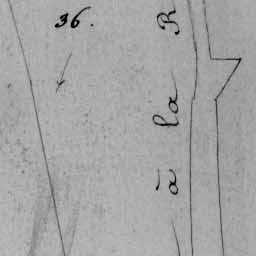 36.
à la R